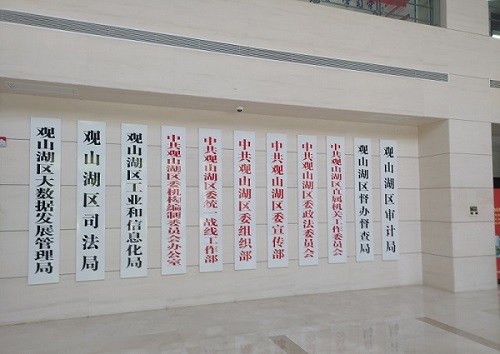 观山湖区大数据发展管理局
观山湖区司法局
观山湖区工业和信息化局
中共观山湖区委机构编制委员会办公室
中共观山湖区委统一战线工作部
中共观山湖区委组织部
中共观山湖区委宣传部
中共观山湖区委政法委员会
中共观山湖区直属机关工作委员会
观山湖区督办督查局
观山湖区审计局